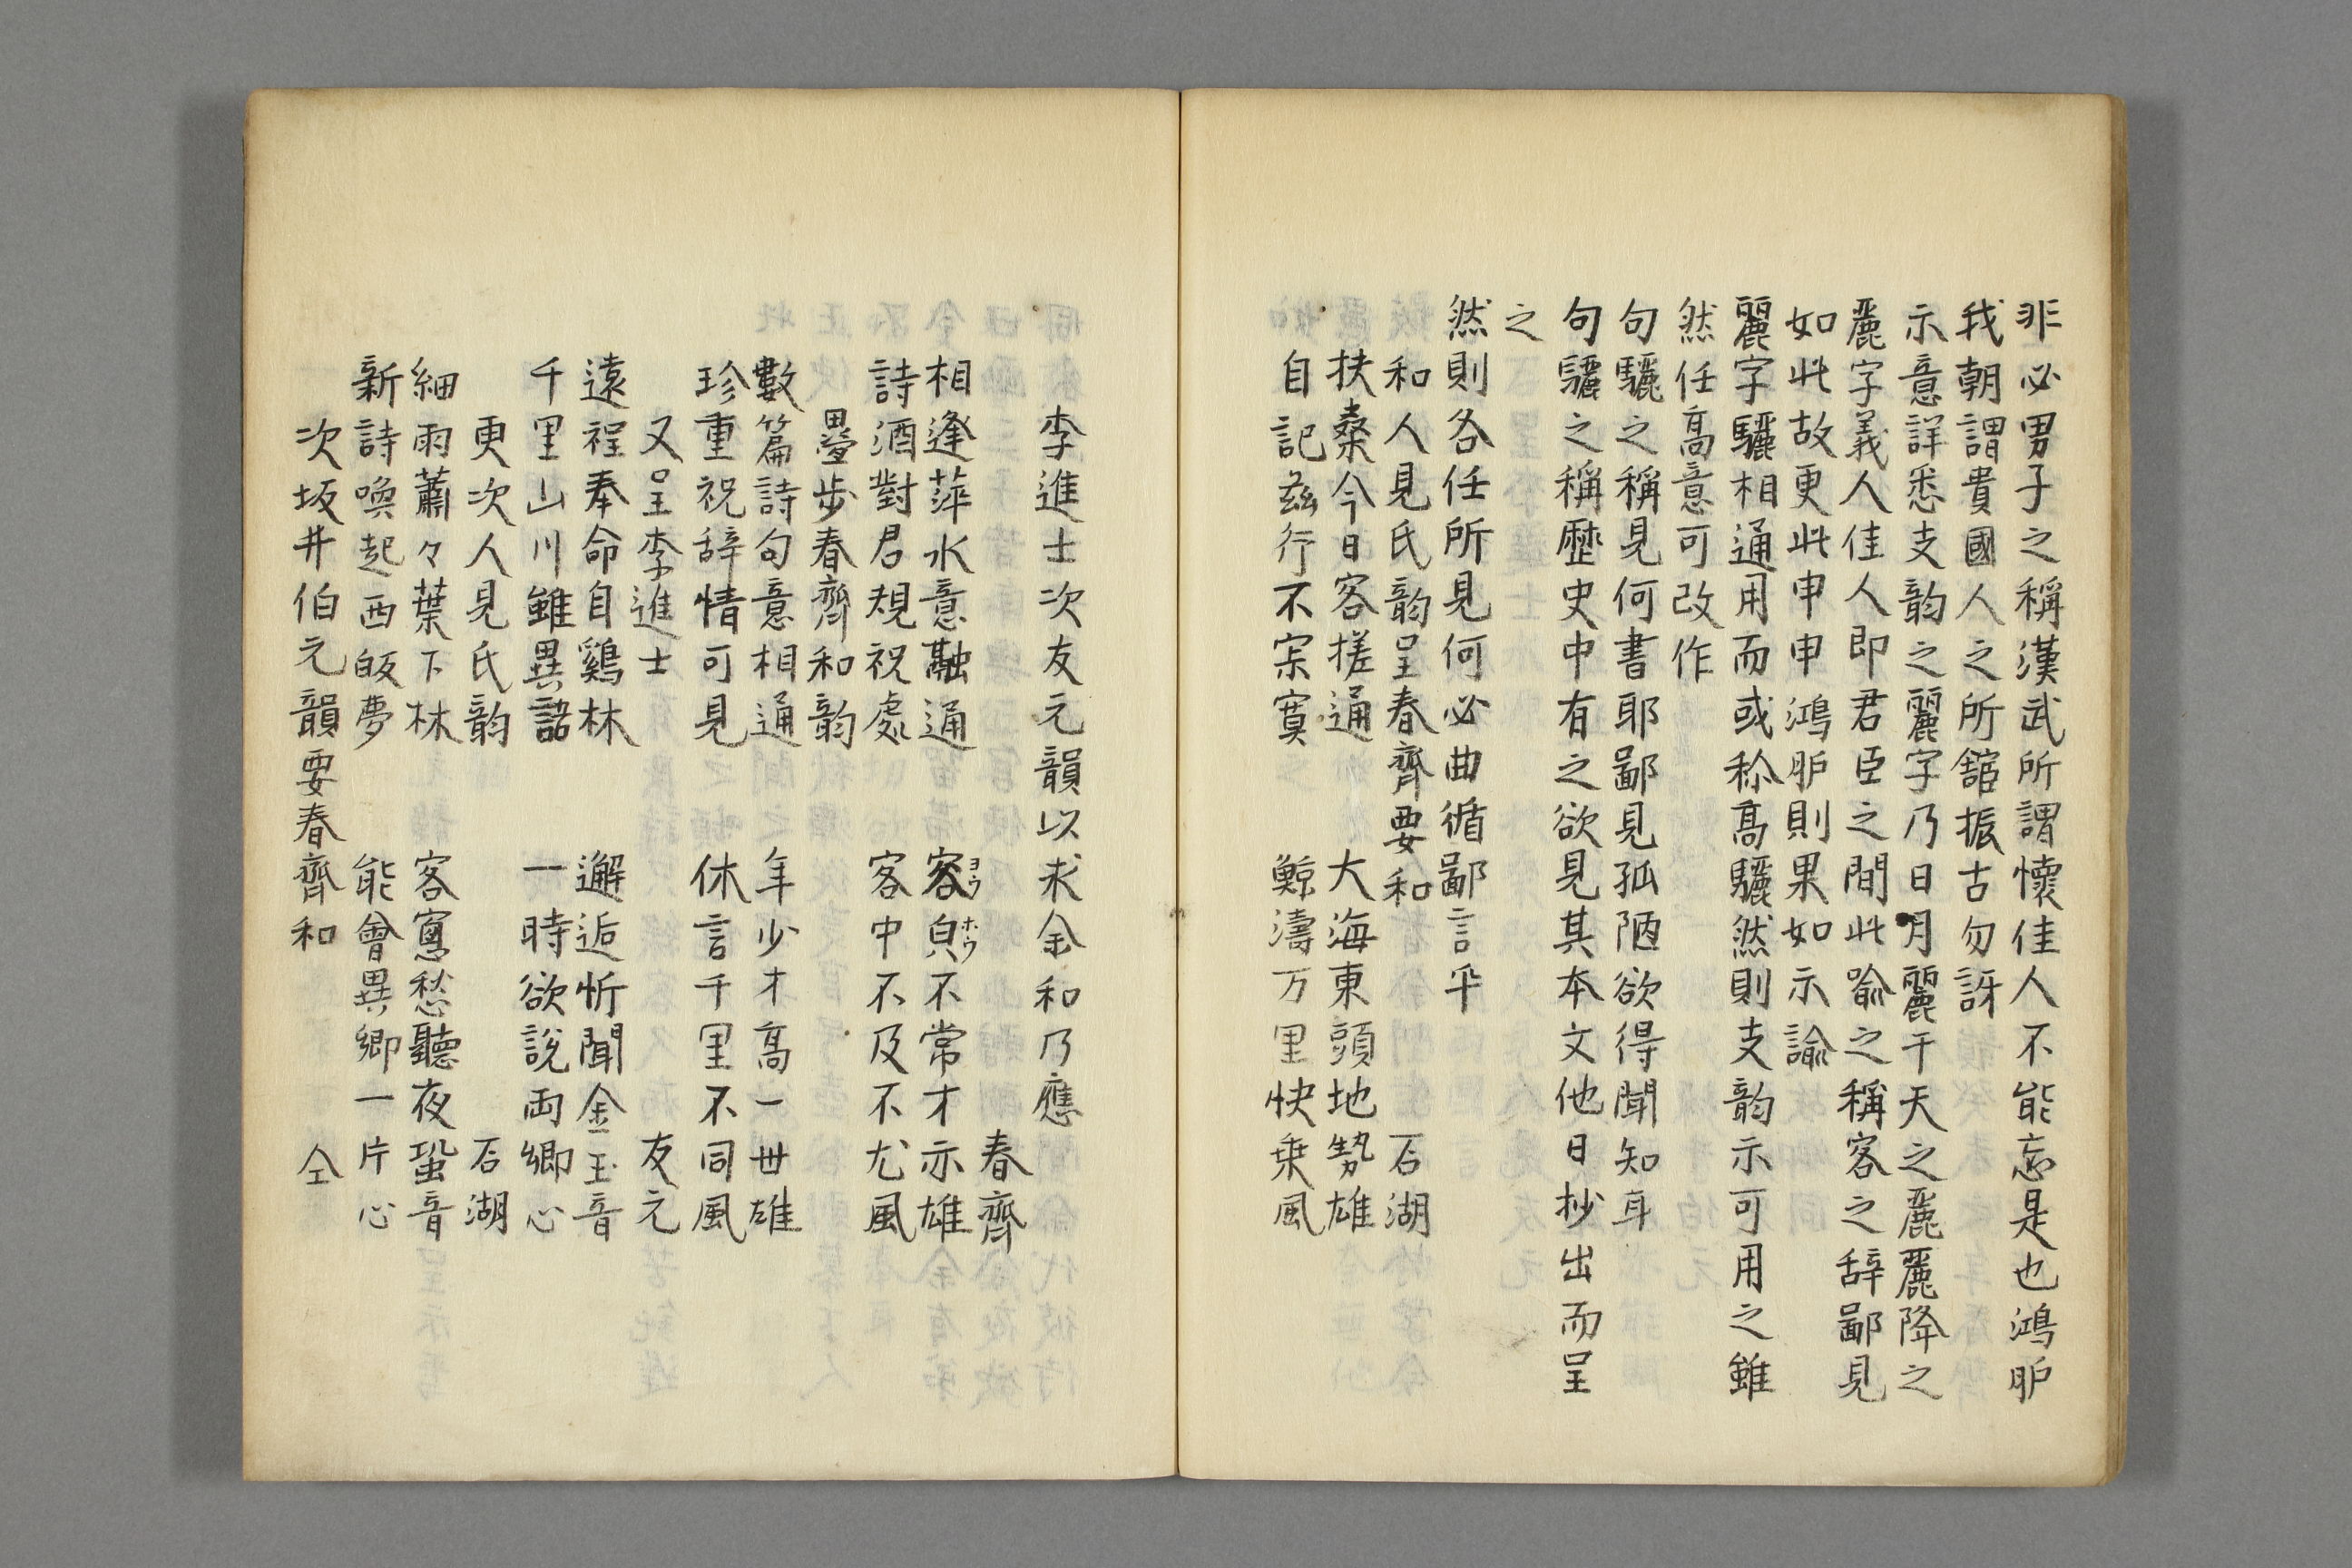 非必男子之稱漢武所謂懷佳人不能忘是也鴻臚
我朝謂貴國人之所舘振古勿訝
示意詳悉支韵之麗字乃日月麗干天之麗麗降之
麗字義人佳人即君臣之間此喩之稱客之辞鄙見
如此故更此申申申鴻臚則果如示諭
麗字驪相通用而或称髙驪然則支韵示可用之雖
然任髙意可改作
句驪之稱見何書耶鄙見孤陋欲得聞知耳
句驪之稱歷史中有之欲見其本文他日抄出而呈
之
然則各任所見何必曲循鄙言乎
和人見氏韵呈春齊要和 石湖
扶桑今日客搓通 大海東頭地勢雄
自記茲行不寂寞 鯨濤万里快乗風
李進士次友元韻以求余和乃應
春齊
相逢萍水意融通 容皃不常才亦雄
ヨウ ホウ
詩酒對君規祝處 客中不及不尤風
疊步春齊和韵
數篇詩句意相通 年少才髙一世雄
珍重祝辞情可見 休言千里不同風
又呈李進士 友元
遠程奉命自鷄林 邂逅忻聞金玉音
千里山川雖異語 一時欲說両郷心
更次人見氏韵 石湖
細雨蕭々葉下林 客窻愁聽夜蛩音
新詩喚起西皈夢 能會異郷一片心
次坂井伯元韻要春齊和 仝